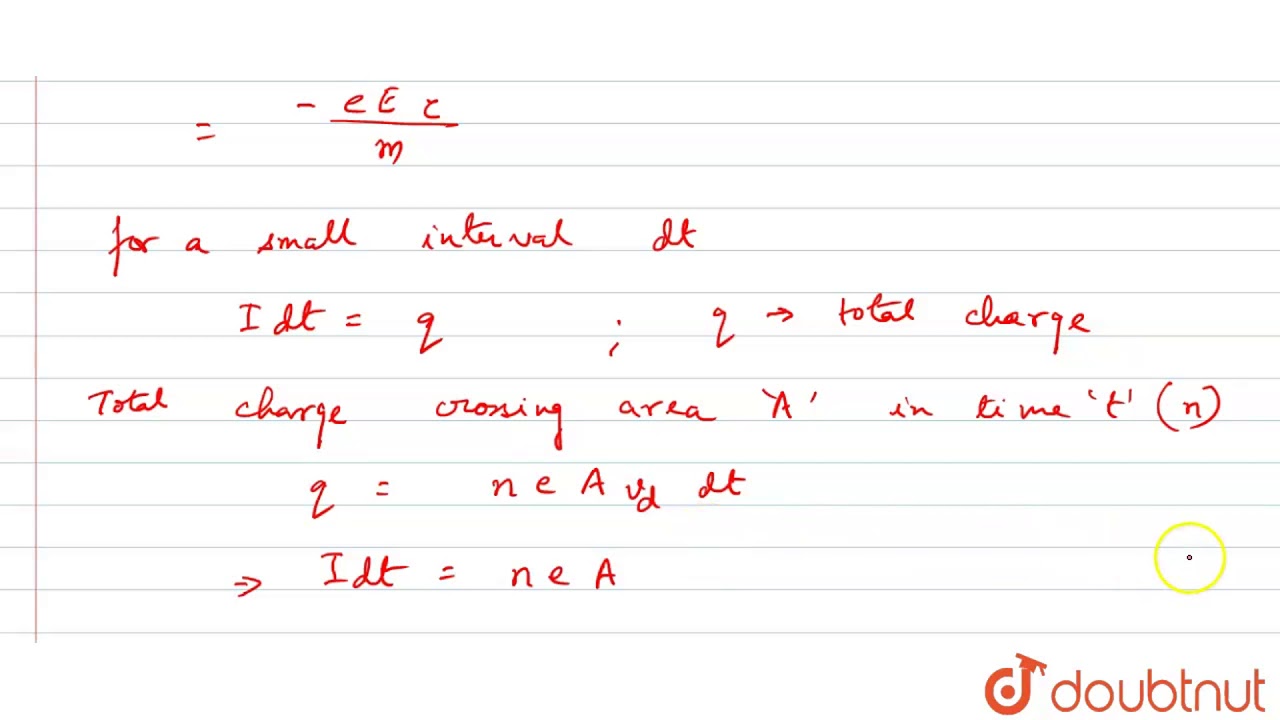 = - e E τ / m
for a small interval dt
I dt = q ; q → total charge
Total charge crossing area 'A' in time 't' (n)
q = n e A v_d dt
⇒ I dt = n e A
doubtnut